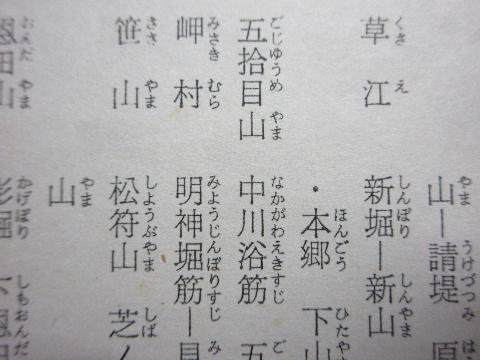 山—請堤 原
草江 新堀—新山
・本郷 下山
五拾目山 中川浴筋 五
岬村 明神堀筋—
笹山 松符山 芝
山
恩田山 影堀 下恩田